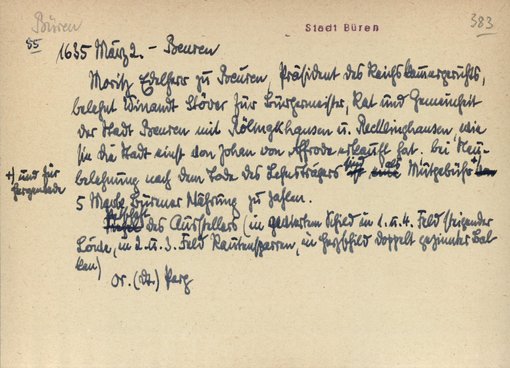 Büren
Stadt Büren
383
55
1635 März 2. - Beuren
Moritz Edelherr zu Beuren, Präsident des Reichskammergerichts,
belehnt Winandt Stöver für Bürgermeister, Rat und Gemeinheit
der Stadt Beuren mit Recklinghausen, wie
sie die Stadt einst von Johan von Affrode erkauft hat. bei Neu-
belehnung nach dem Tode des Lehnsträgers sind als
+) und für
5 Mark Bürener Währung zu zahlen.
des Ausstellers (in geviertem Schild in 1. u. 4. Feld steigender
Löwe, in 2. u. 3. Feld Rautensparren, in Herzschild doppelt gezinnter Bal-
ken)
Or. (dt.) Perg